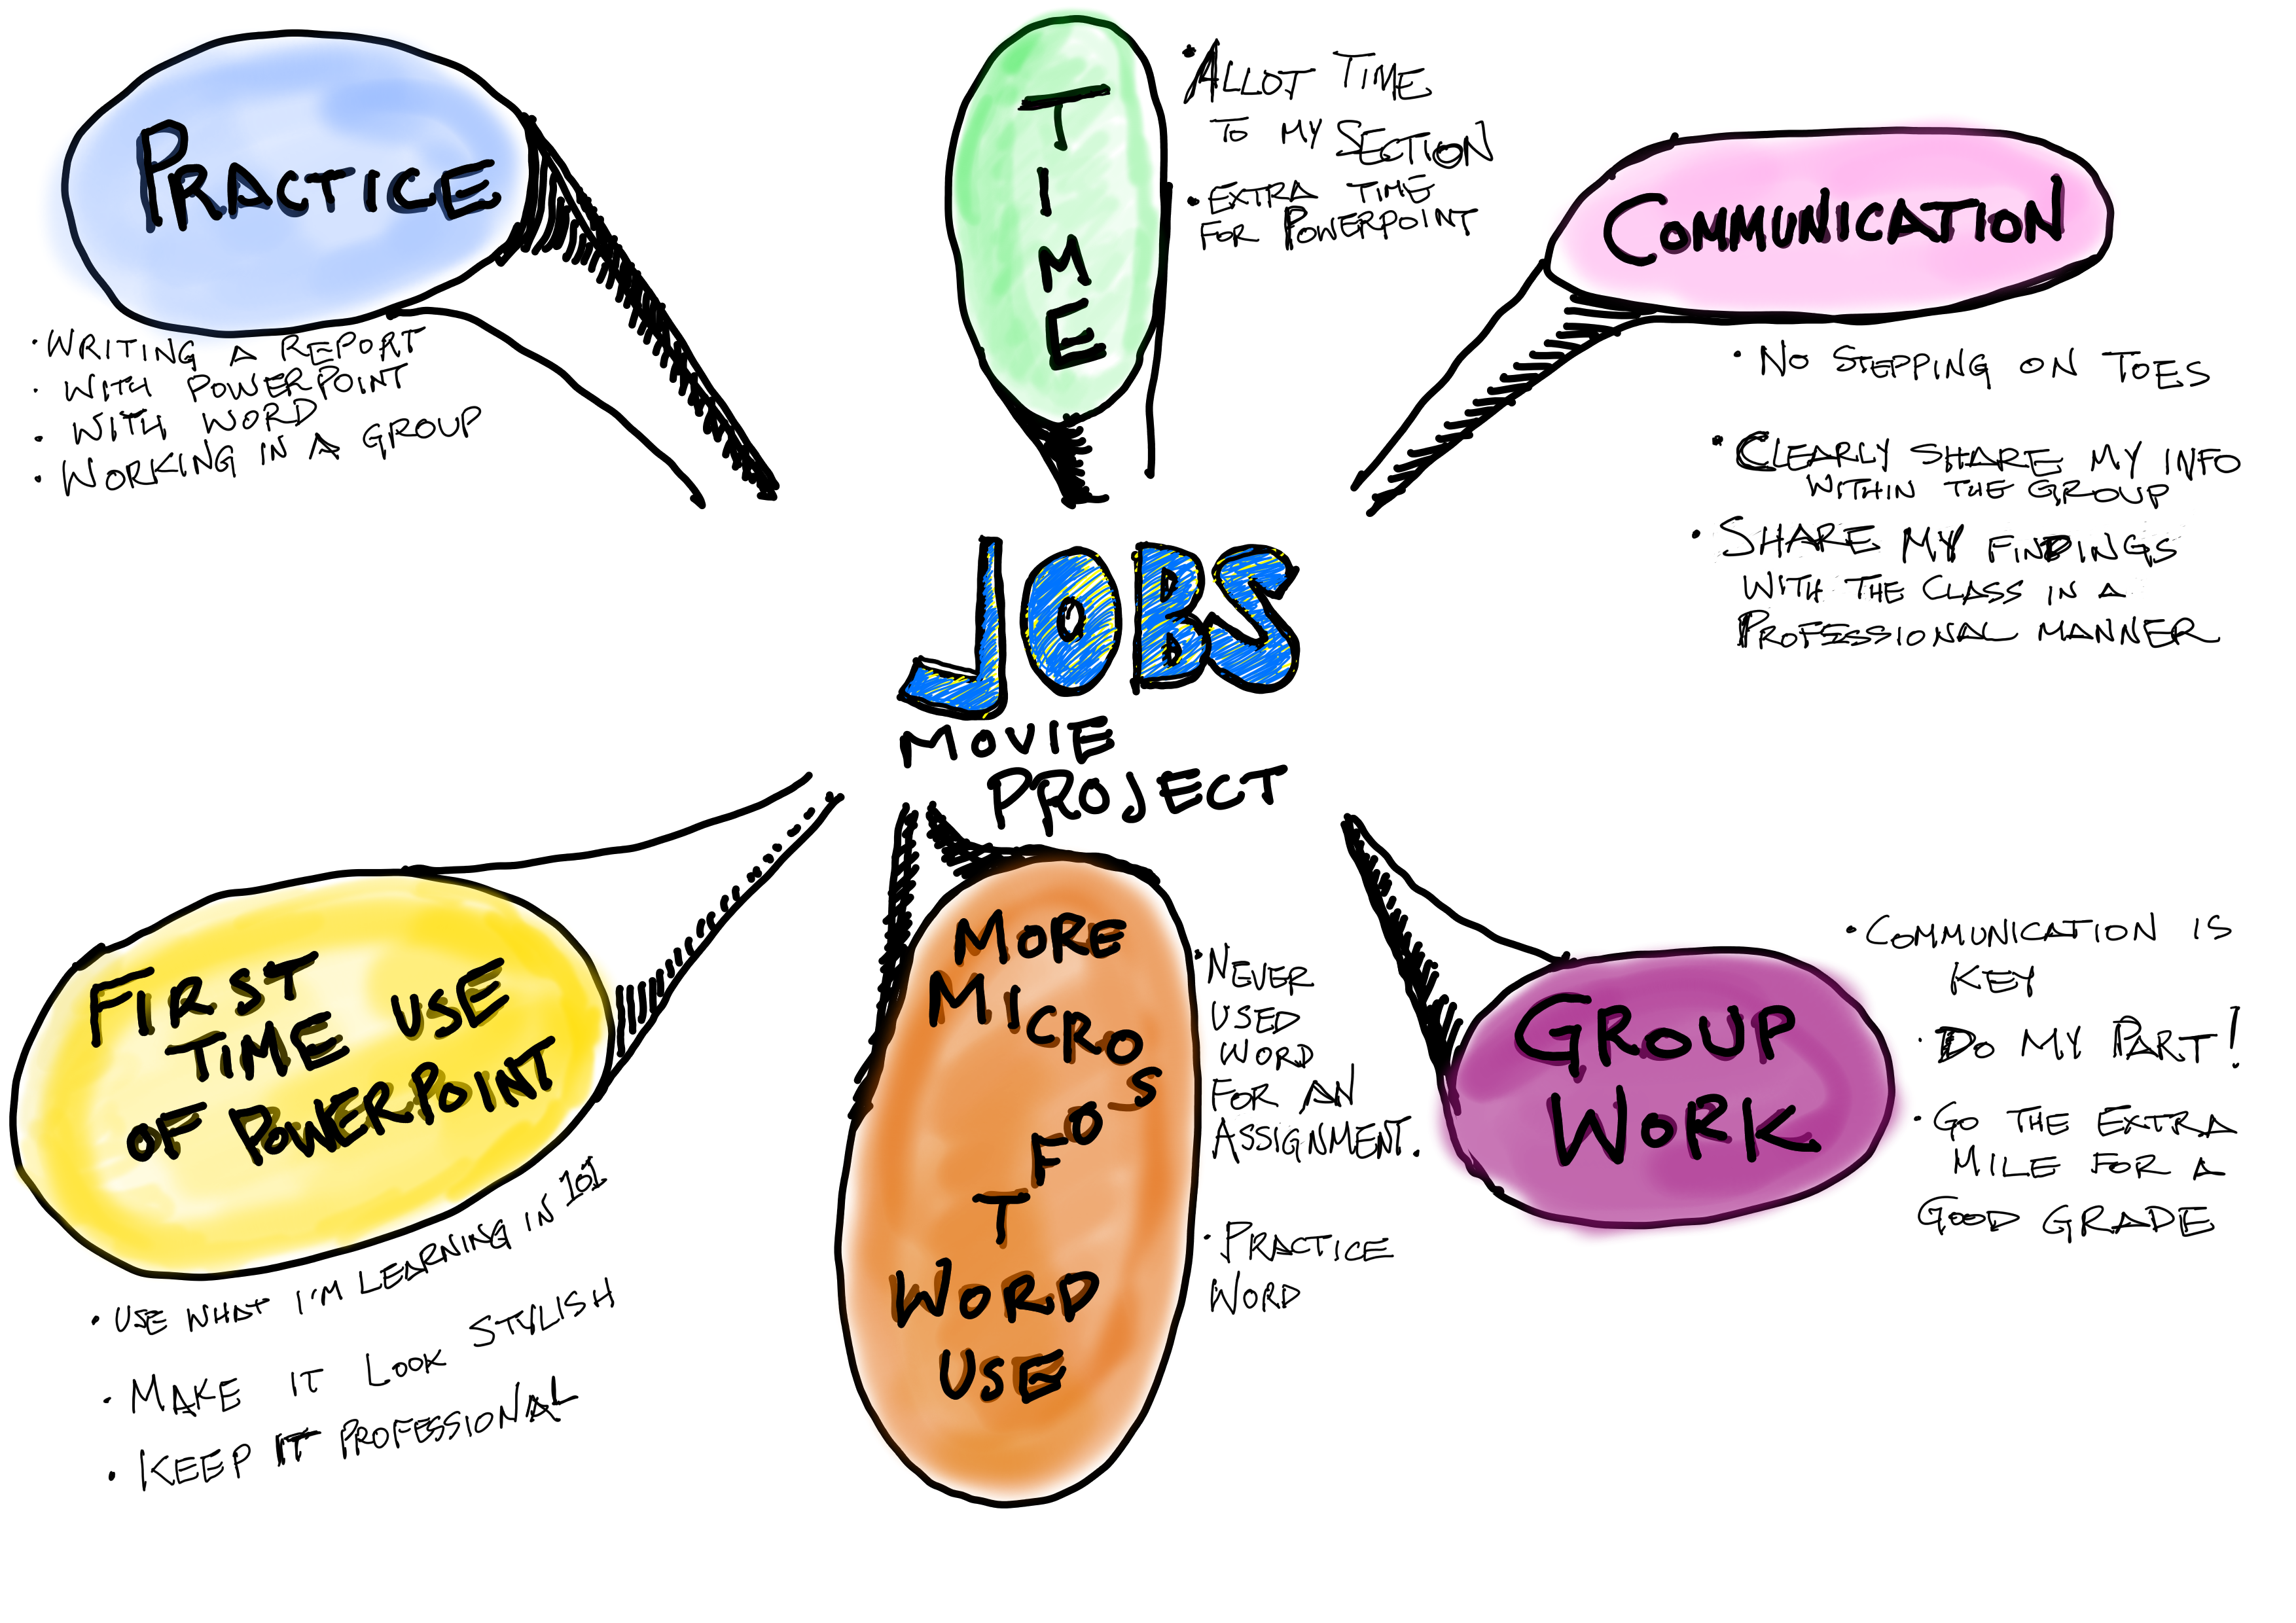 PRACTICE
• WRITING A REPORT
• WITH POWERPOINT
• WITH WORD
• WORKING IN A GROUP
TIME
• ALLOT TIME
TO MY SECTION
• EXTRA TIME
FOR POWERPOINT
COMMUNICATION
• NO STEPPING ON TOES
• CLEARLY SHARE MY INFO
WITHIN THE GROUP
• SHARE MY FINDINGS
WITH THE CLASS IN A
PROFESSIONAL MANNER
JOBS
MOVIE
PROJECT
FIRST
TIME USE
OF POWERPOINT
• USE WHAT I'M LEARNING IN 101
• MAKE IT LOOK STYLISH
• KEEP IT PROFESSIONAL
MORE
MICROSOFT
WORD
USE
• NEVER
USED
WORD
FOR AN
ASSIGNMENT.
• PRACTICE
WORD
GROUP
WORK
• COMMUNICATION IS
KEY
• DO MY PART!
• GO THE EXTRA
MILE FOR A
GOOD GRADE